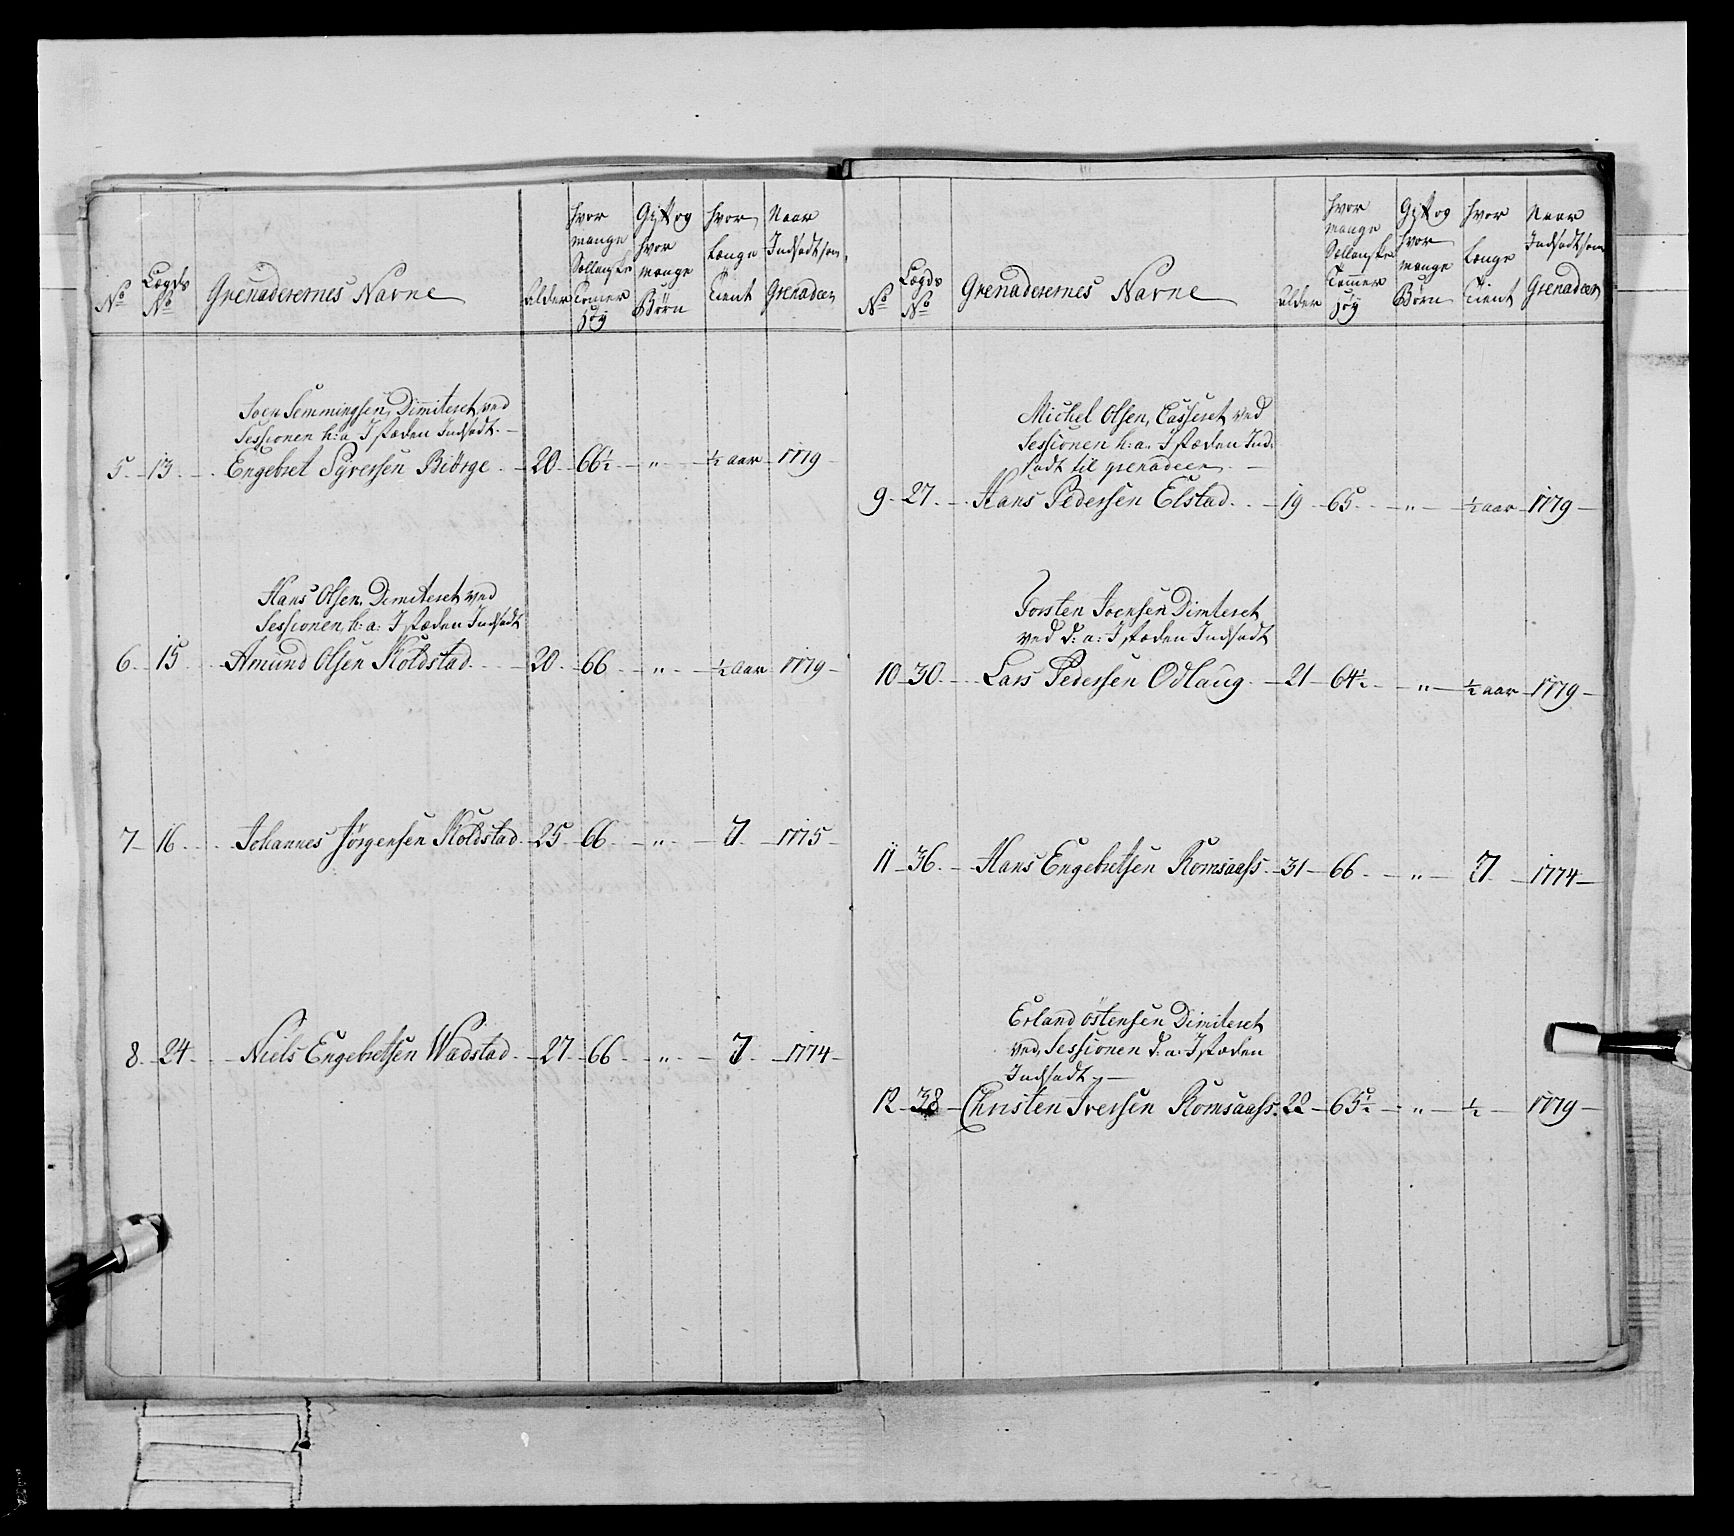 No
Lægds No
Grenaderernes Navne
Alder
hvor mange Sællandske Tomer høy
Gift og hvor mange Børn
hvor Længe Tient
Naar Indsadt som Grenadeer
Joen Semmingsen, Dimiteret ved
Sessionen h: a: I stæden Indsadt.
5 13 Engebret Syversen Biörge 20 66½ " ½ aar 1779
Hans Olsen, Dimiteret ved
Sessionen h: a: I stæden Indsadt
6 15 Amund Olsen Koldstad 20 66 " ½ aar 1779
7 16 Johannes Jörgensen Koldstad 25 66 " 7 1775
8 24 Niels Engebretsen Wadstad 27 66 " 7 1774
No
Lægds No
Grenaderernes Navne
Alder
hvor mange Sællandske Tommer høy
Gift og hvor mange Börn
hvor Længe Tient
Naar Indsadt som Grenadeer
Michel Olsen, Casseret ved
Sessionen h: a: I stæden Ind-
sadt til grenadeer
9 27 Hans Pedersen Elstad 19 65 " ½ aar 1779
Torsten Joensen Dimteret
ved d: a: I stæden Indsadt
10 30 Lars Pedersen Odlaug 21 64½ " ½ aar 1779
11 36 Hans Engebretsen Romsaass 31 66 " 7 1774
Erland östensen Dimiteret
ved Sessionen d: a: I stæden
Indsadt
12 38 Christen Iversen Romsaass 22 65½ " ½ 1779